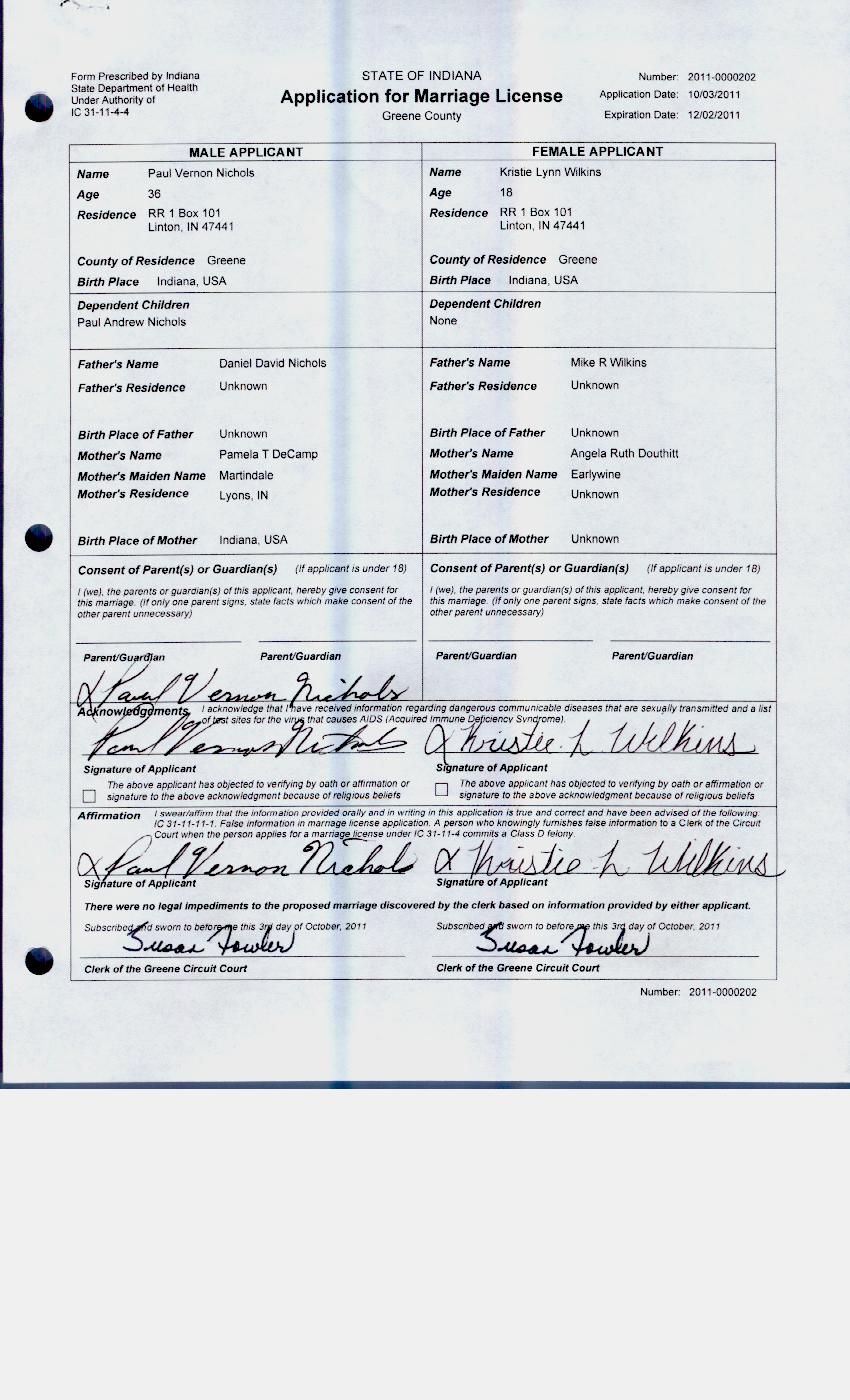 Form Prescribed by Indiana
State Department of Health
Under Authority of
IC 31-11-4-4
STATE OF INDIANA
Application for Marriage License
Greene County
Number: 2011-0000202
Application Date: 10/03/2011
Expiration Date: 12/02/2011
MALE APPLICANT
Name Paul Vernon Nichols
Age 36
Residence RR 1 Box 101
Linton, IN 47441
County of Residence Greene
Birth Place Indiana, USA
Dependent Children
Paul Andrew Nichols
Father's Name Daniel David Nichols
Father's Residence Unknown
Birth Place of Father Unknown
Mother's Name Pamela T DeCamp
Mother's Maiden Name Martindale
Mother's Residence Lyons, IN
Birth Place of Mother Indiana, USA
Consent of Parent(s) or Guardian(s) (If applicant is under 18)
I (we), the parents or guardian(s) of this applicant, hereby give consent for
this marriage. (If only one parent signs, state facts which make consent of the
other parent unnecessary)
Parent/Guardian Parent/Guardian
FEMALE APPLICANT
Name Kristie Lynn Wilkins
Age 18
Residence RR 1 Box 101
Linton, IN 47441
County of Residence Greene
Birth Place Indiana, USA
Dependent Children
None
Father's Name Mike R Wilkins
Father's Residence Unknown
Birth Place of Father Unknown
Mother's Name Angela Ruth Douthitt
Mother's Maiden Name Earlywine
Mother's Residence Unknown
Birth Place of Mother Unknown
Consent of Parent(s) or Guardian(s) (If applicant is under 18)
I (we), the parents or guardian(s) of this applicant, hereby give consent for
this marriage. (If only one parent signs, state facts which make consent of the
other parent unnecessary)
Parent/Guardian Parent/Guardian
X Paul Vernon Nichols
Acknowledgments I acknowledge that I have received information regarding dangerous communicable diseases that are sexually transmitted and a list
of test sites for the virus that causes AIDS (Acquired Immune Deficiency Syndrome).
Paul Vernon Nichols X Kristie L Wilkins
Signature of Applicant Signature of Applicant
The above applicant has objected to verifying by oath or affirmation or
signature to the above acknowledgment because of religious beliefs
The above applicant has objected to verifying by oath or affirmation or
signature to the above acknowledgment because of religious beliefs
Affirmation I swear/affirm that the information provided orally and in writing in this application is true and correct and have been advised of the following:
IC 31-11-11-1. False information in marriage license application. A person who knowingly furnishes false information to a Clerk of the Circuit
Court when the person applies for a marriage license under IC 31-11-4 commits a Class D felony.
X Paul Vernon Nichols X Kristie L Wilkins
Signature of Applicant Signature of Applicant
There were no legal impediments to the proposed marriage discovered by the clerk based on information provided by either applicant.
Subscribed and sworn to before me this 3rd day of October, 2011 Subscribed and sworn to before me this 3rd day of October, 2011
Susan Fowler Susan Fowler
Clerk of the Greene Circuit Court Clerk of the Greene Circuit Court
Number: 2011-0000202